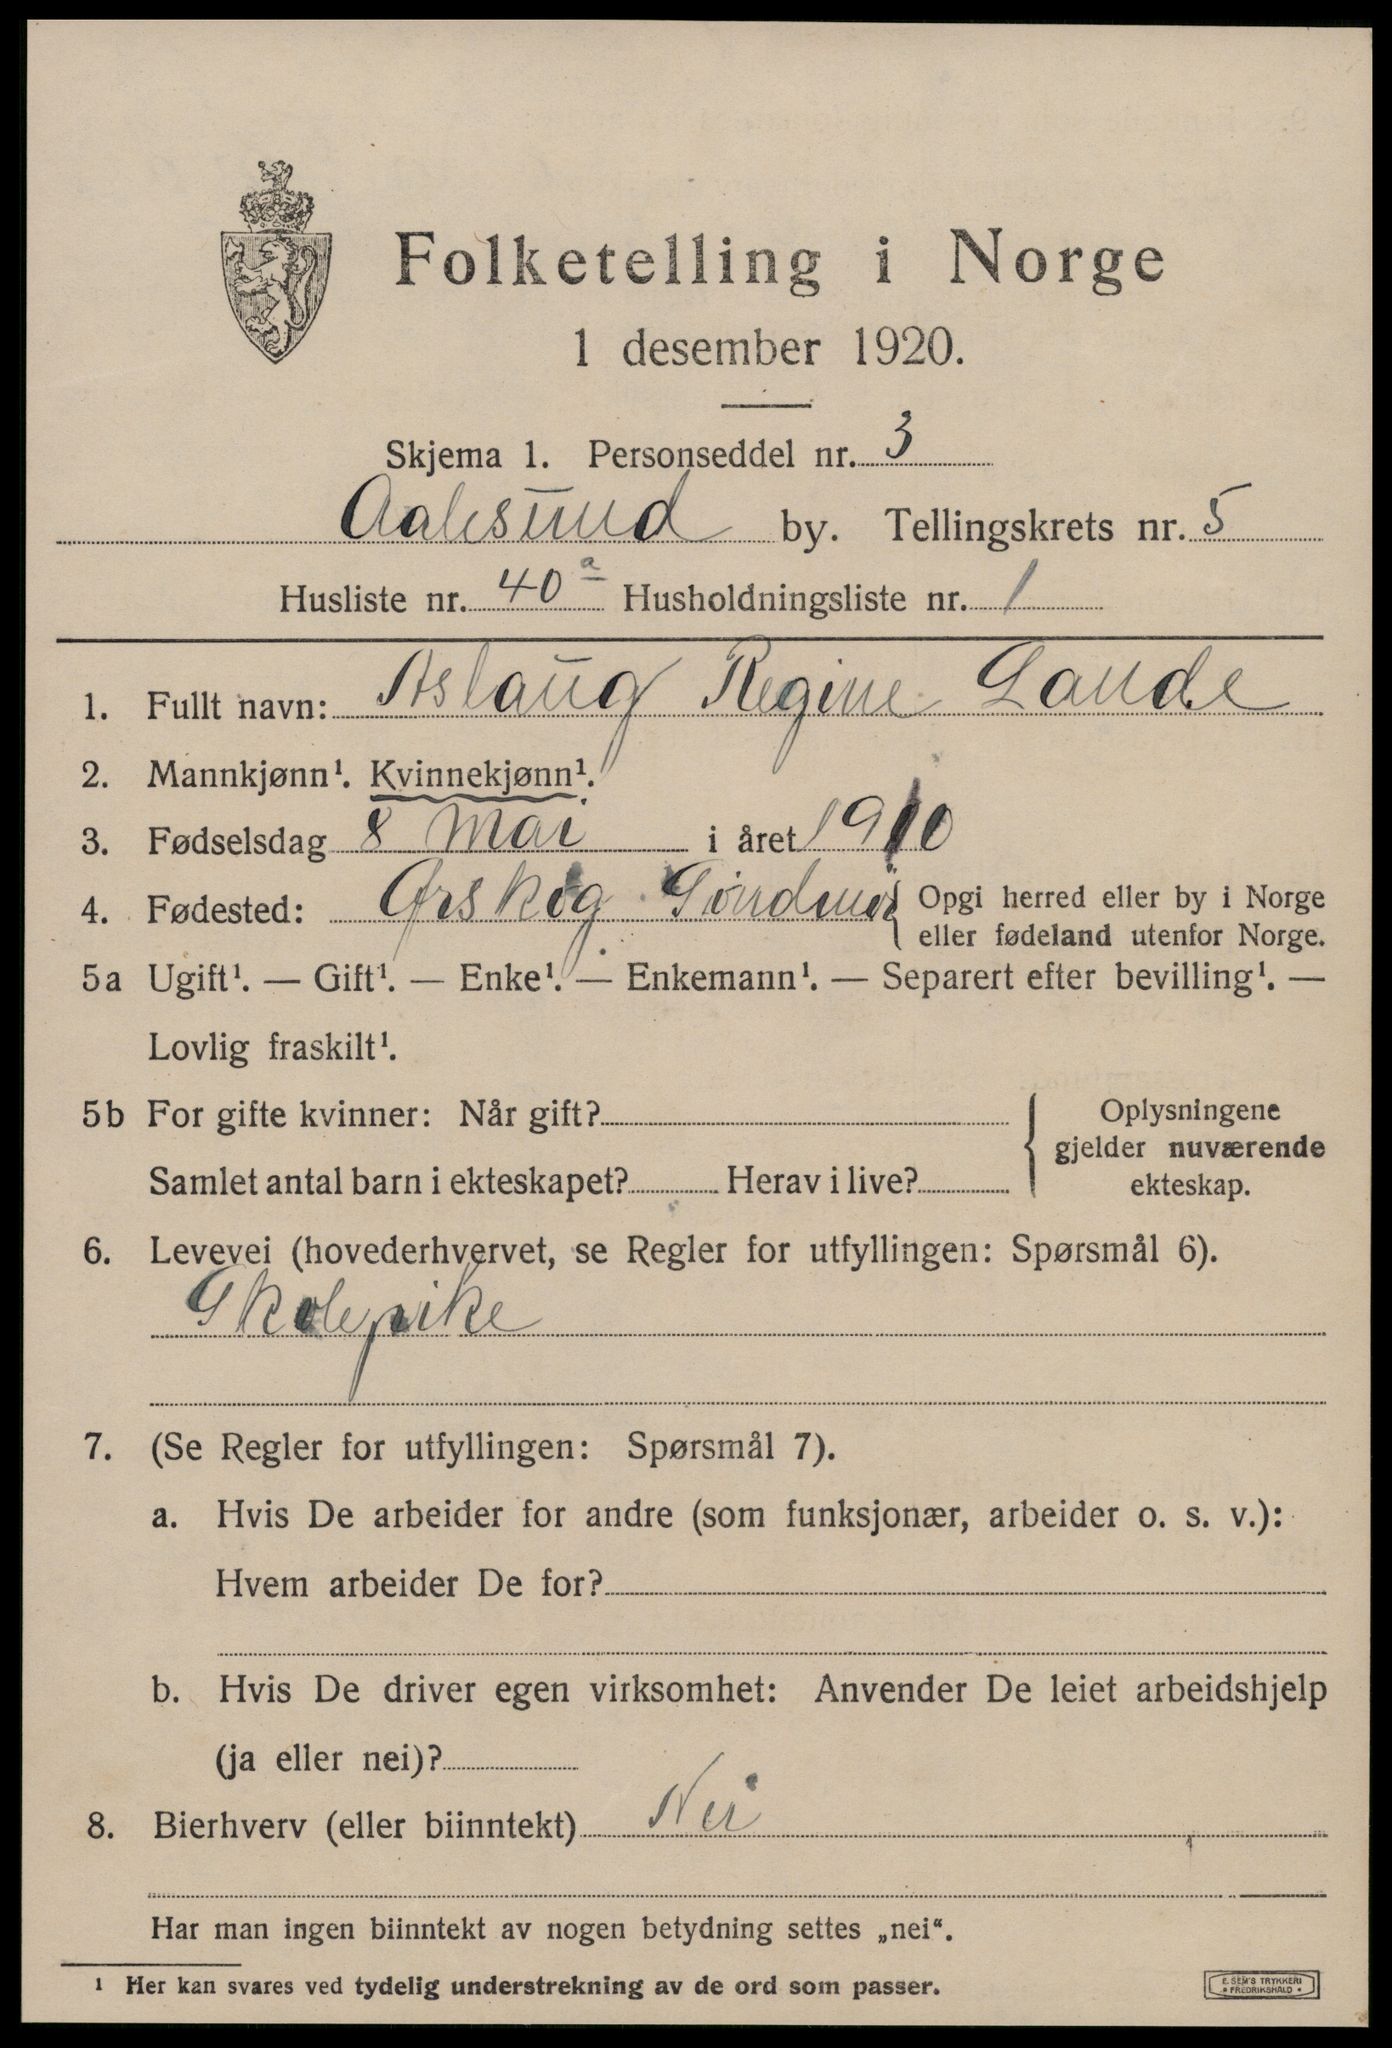 Folketelling i Norge
1 desember 1920.
Skjema 1. Personseddel nr. 3
Aalesund by. Tellingskrets nr. 5
Husliste nr. 40 a Husholdningsliste nr. 1
1. Fullt navn: Aslaug Regine Lande
2. Mannkjønn¹. Kvinnekjønn¹.
3. Fødselsdag 8 Mai i året 1910
4. Fødested: Ørskog Søndmør { Opgi herred eller by i Norge
eller fødeland utenfor Norge.
5a Ugift¹. — Gift¹. — Enke¹. — Enkemann¹. — Separert efter bevilling¹. —
Lovlig fraskilt¹.
5b For gifte kvinner: Når gift? { Oplysningene
gjelder nuværende
Samlet antal barn i ekteskapet? Herav i live? ekteskap.
6. Levevei (hovederhvervet, se Regler for utfyllingen: Spørsmål 6).
Skolepike
7. (Se Regler for utfyllingen: Spørsmål 7).
a. Hvis De arbeider for andre (som funksjonær, arbeider o. s. v.):
Hvem arbeider De for?
b. Hvis De driver egen virksomhet: Anvender De leiet arbeidshjelp
(ja eller nei)?
8. Bierhverv (eller biinntekt) Nei
Har man ingen biinntekt av nogen betydning settes „nei“.
¹ Her kan svares ved tydelig understrekning av de ord som passer.
E. SEM'S TRYKKERI
* FREDRIKSHALD *